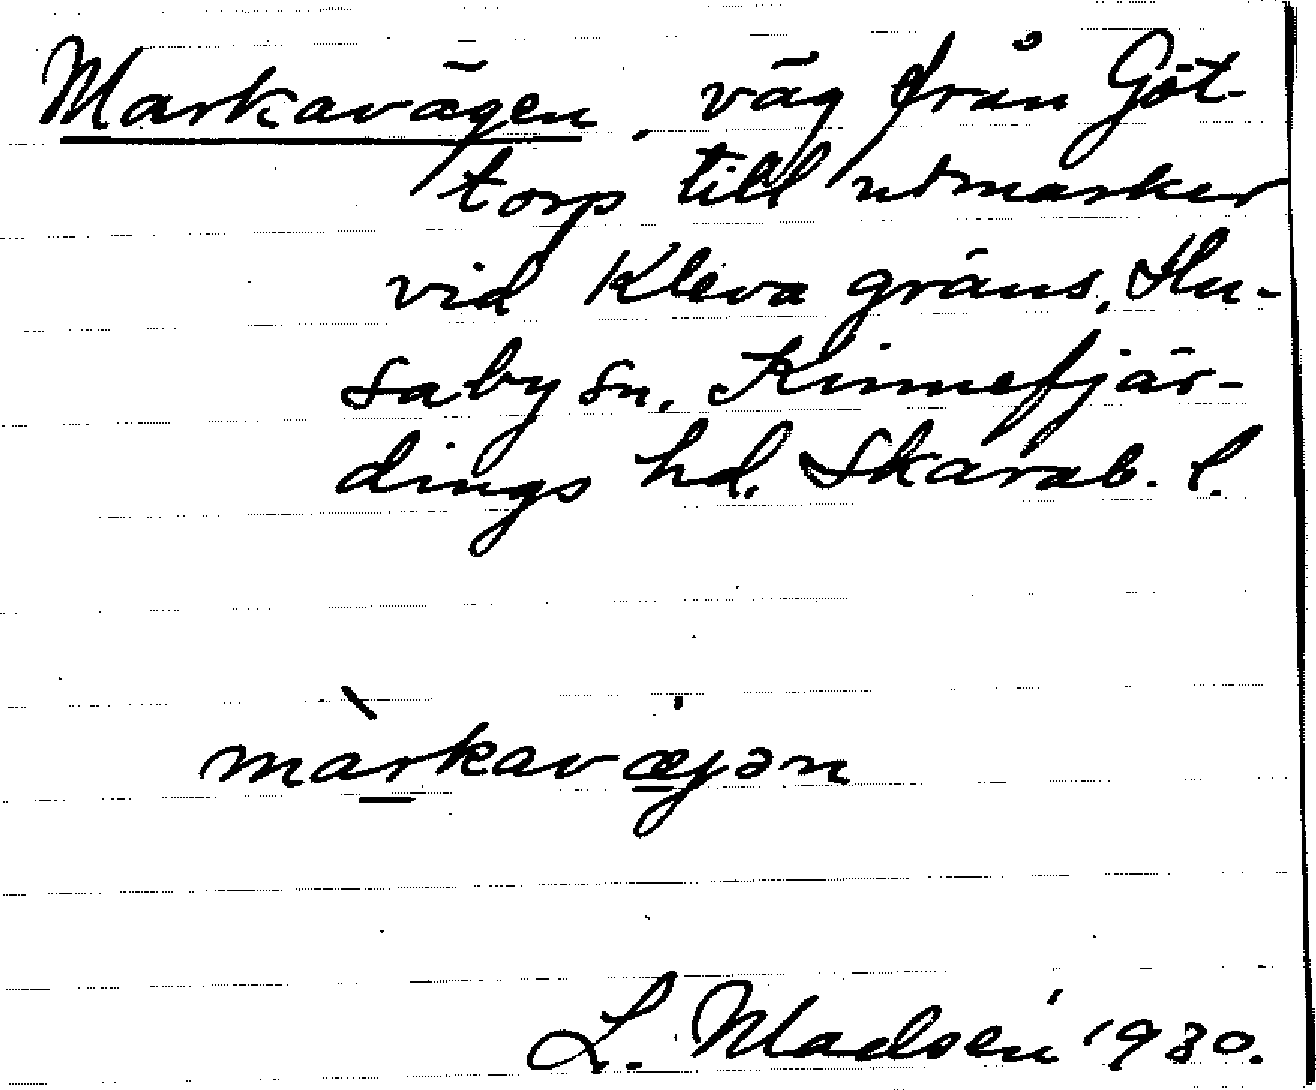 Markavägen, väg från Göt-
torp till utmarker
vid Kleva gräns, Hu-
saby sn. Kinnefjär-
dings hd. Skarab. l.
màrkavæjən
L. Madsén 1930.